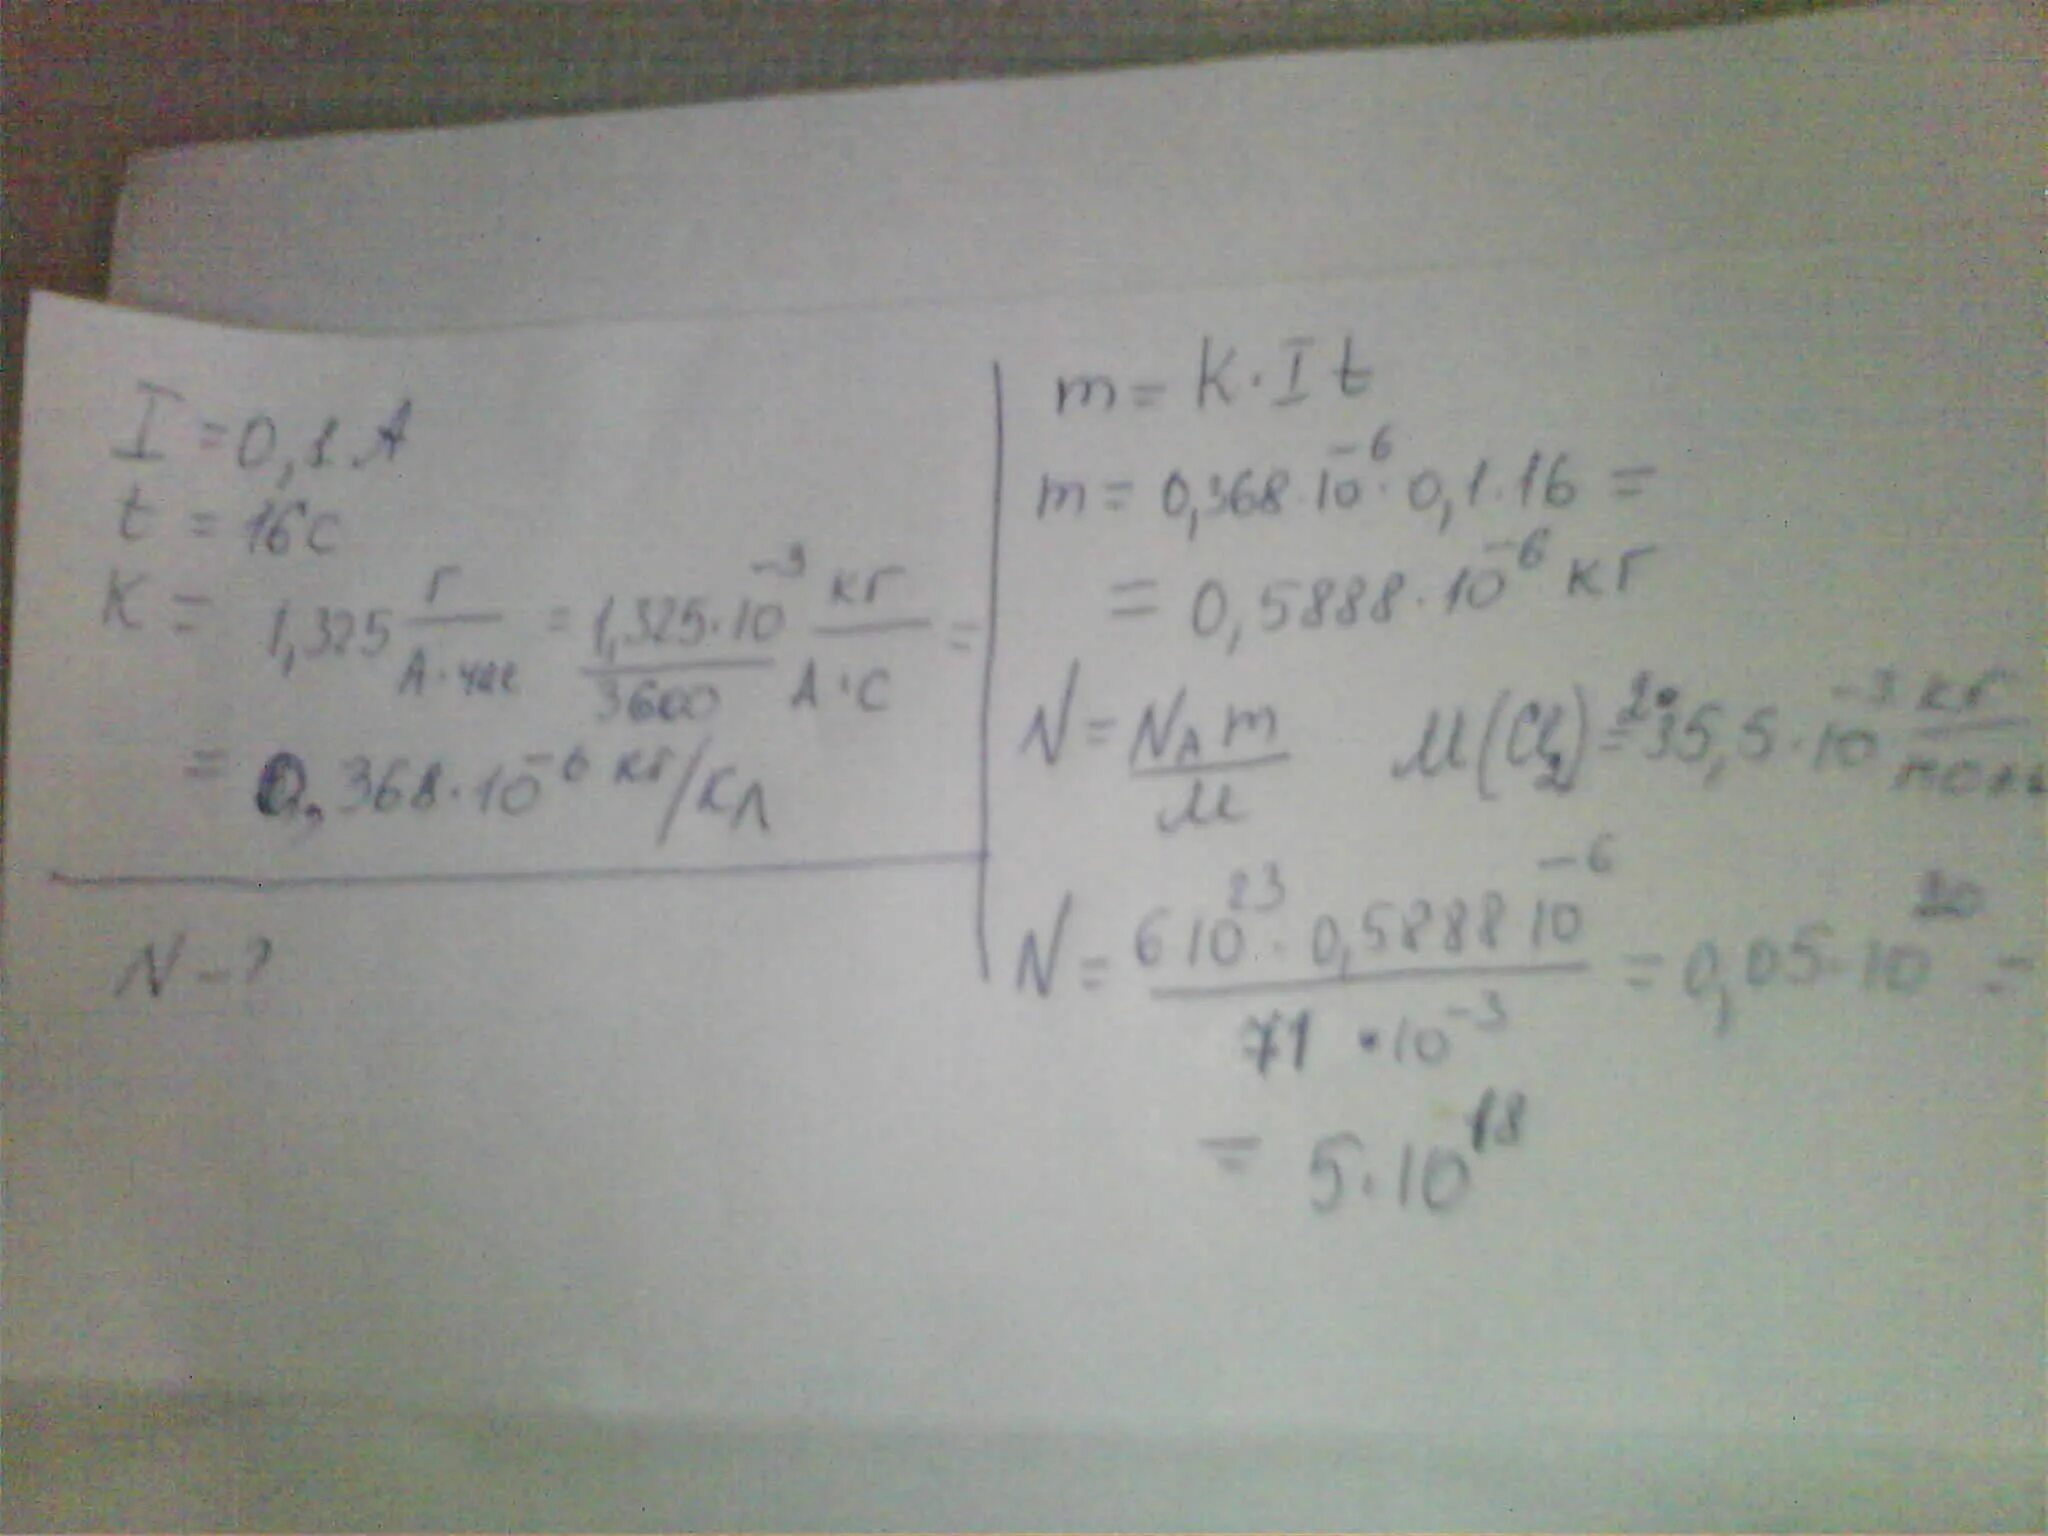 I = 0,1 А
t = 16 с
K = 1,325 г/А·час = 1,325·10⁻³/3600 кг/А·с =
= 0,368·10⁻⁶ кг/Кл
N - ?
m = K·I t
m = 0,368·10⁻⁶·0,1·16 =
= 0,5888·10⁻⁶ кг
N = N_A m/M M(Cl₂) = 2·35,5·10⁻³ кг/моль
N = 6 10²³·0,5888 10⁻⁶/71·10⁻³ = 0,05·10²⁰ =
= 5·10¹⁸